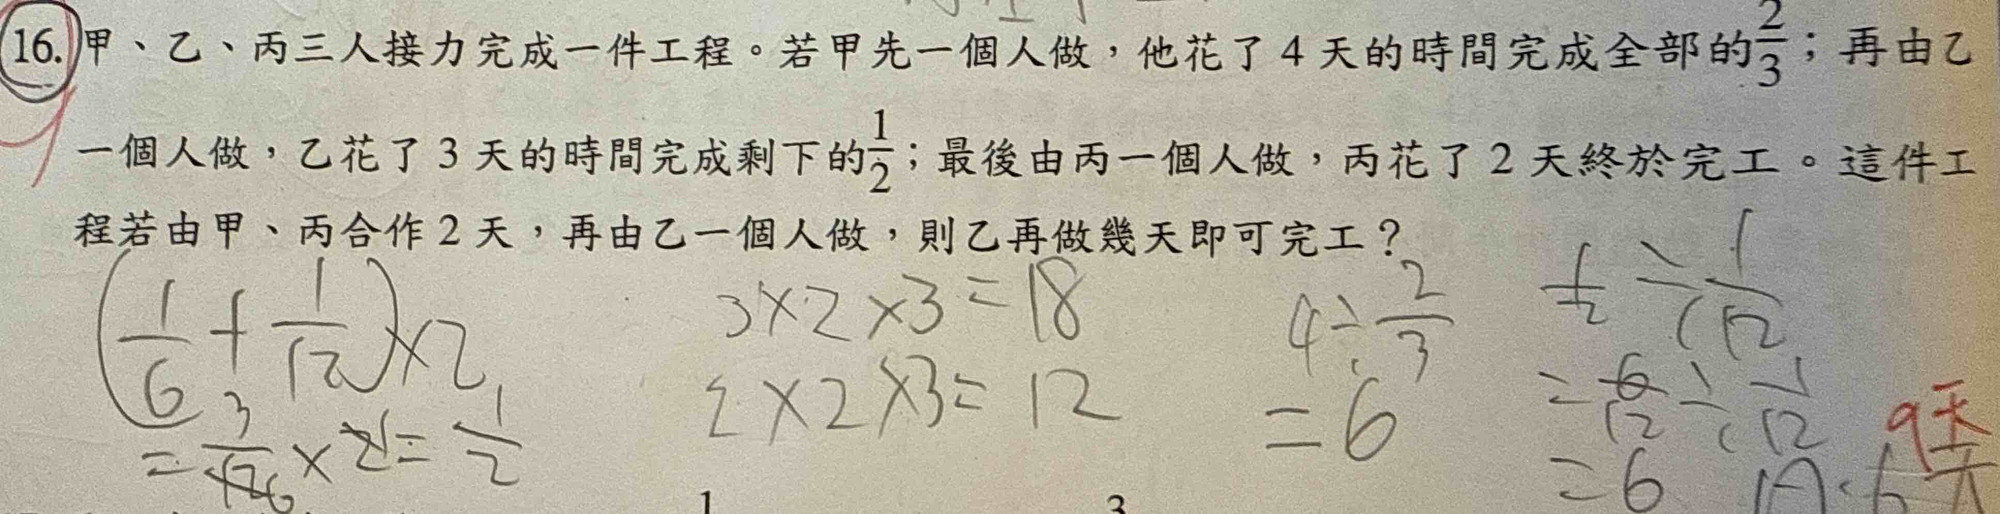 16. 甲、乙、丙三人接力完成一件工程。若甲先一個人做，他花了 4 天的時間完成全部的2/3；再由乙
一個人做，乙花了 3 天的時間完成剩下的1/2；最後由丙一個人做，丙花了 2 天終於完工。這件工
程若由甲、丙合作 2 天，再由乙一個人做，則乙再做幾天即可完工？
(1/6 + 1/12) × 2
= 3/12 × 2 = 1/2
3×2×3=18
2×2×3=12
4÷2/3
=6
1/2 ÷ 1/12
= 6/12 ÷ 1/12
=6
A:6天
9天
1
3